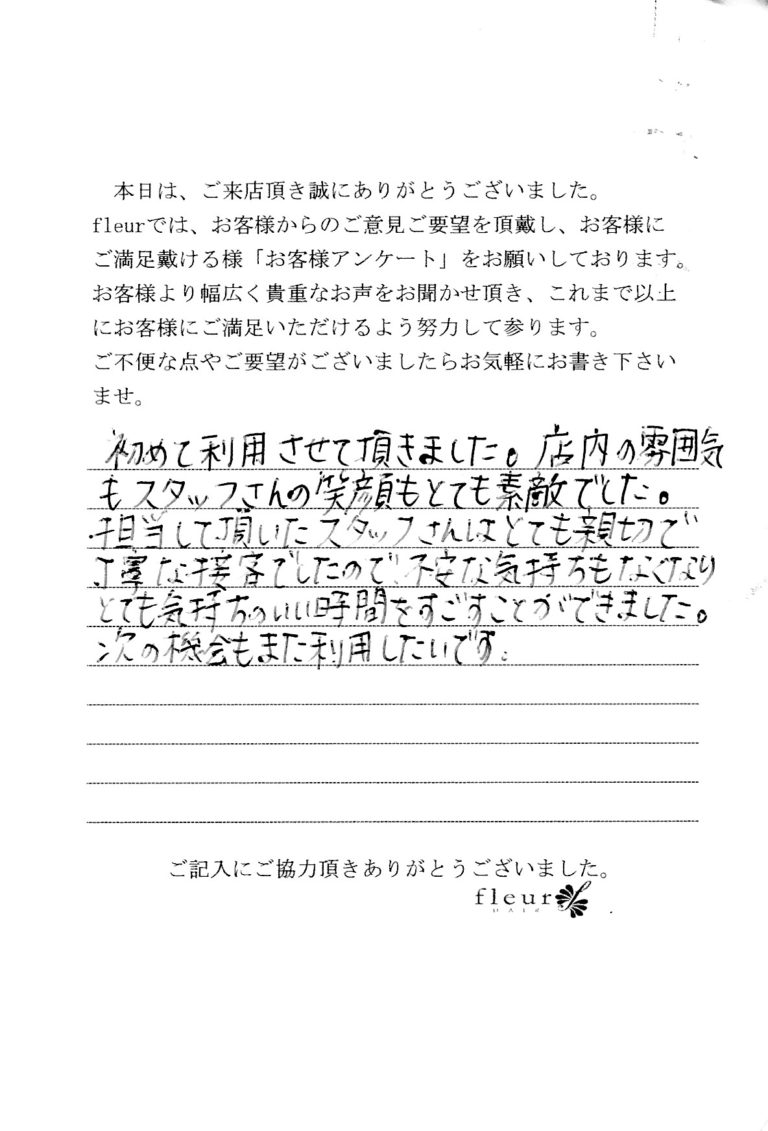 本日は、ご来店頂き誠にありがとうございました。
fleurでは、お客様からのご意見ご要望を頂戴し、お客様に
ご満足戴ける様「お客様アンケート」をお願いしております。
お客様より幅広く貴重なお声をお聞かせ頂き、これまで以上
にお客様にご満足いただけるよう努力して参ります。
ご不便な点やご要望がございましたらお気軽にお書き下さい
ませ。
初めて利用させて頂きました。店内の雰囲気
もスタッフさんの笑顔もとても素敵でした。
担当して頂いたスタッフさんはとても親切で
丁寧な接客でしたので、不安な気持ちもなくなり
とても気持ちのいい時間をすごすことができました。
次の機会もまた利用したいです。
ご記入にご協力頂きありがとうございました。
fleur
HAIR